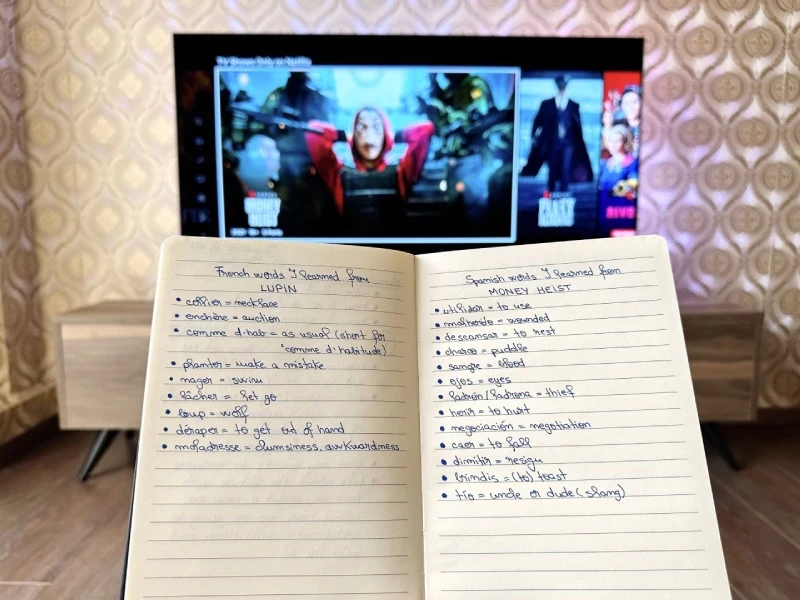 TV Shows Only on Netflix
French words I learned from
LUPIN
• collier = necklace
• enchère = auction
• comme d'hab = as usual (short for
"comme d'habitude)
• planter = make a mistake
• nager = swim
• lâcher = let go
• loup = wolf
• déraper = to get out of hand
• maladresse = clumsiness, awkwardness
Spanish words I learned from
MONEY HEIST
• utilizar = to use
• malherido = wounded
• descansar = to rest
• charco = puddle
• sangre = blood
• ojos = eyes
• ladrón/ladrona = thief
• herir = to hurt
• negociación = negotiation
• caer = to fall
• dimitir = resign
• brindis = (to) toast
• tío = uncle or dude (slang)